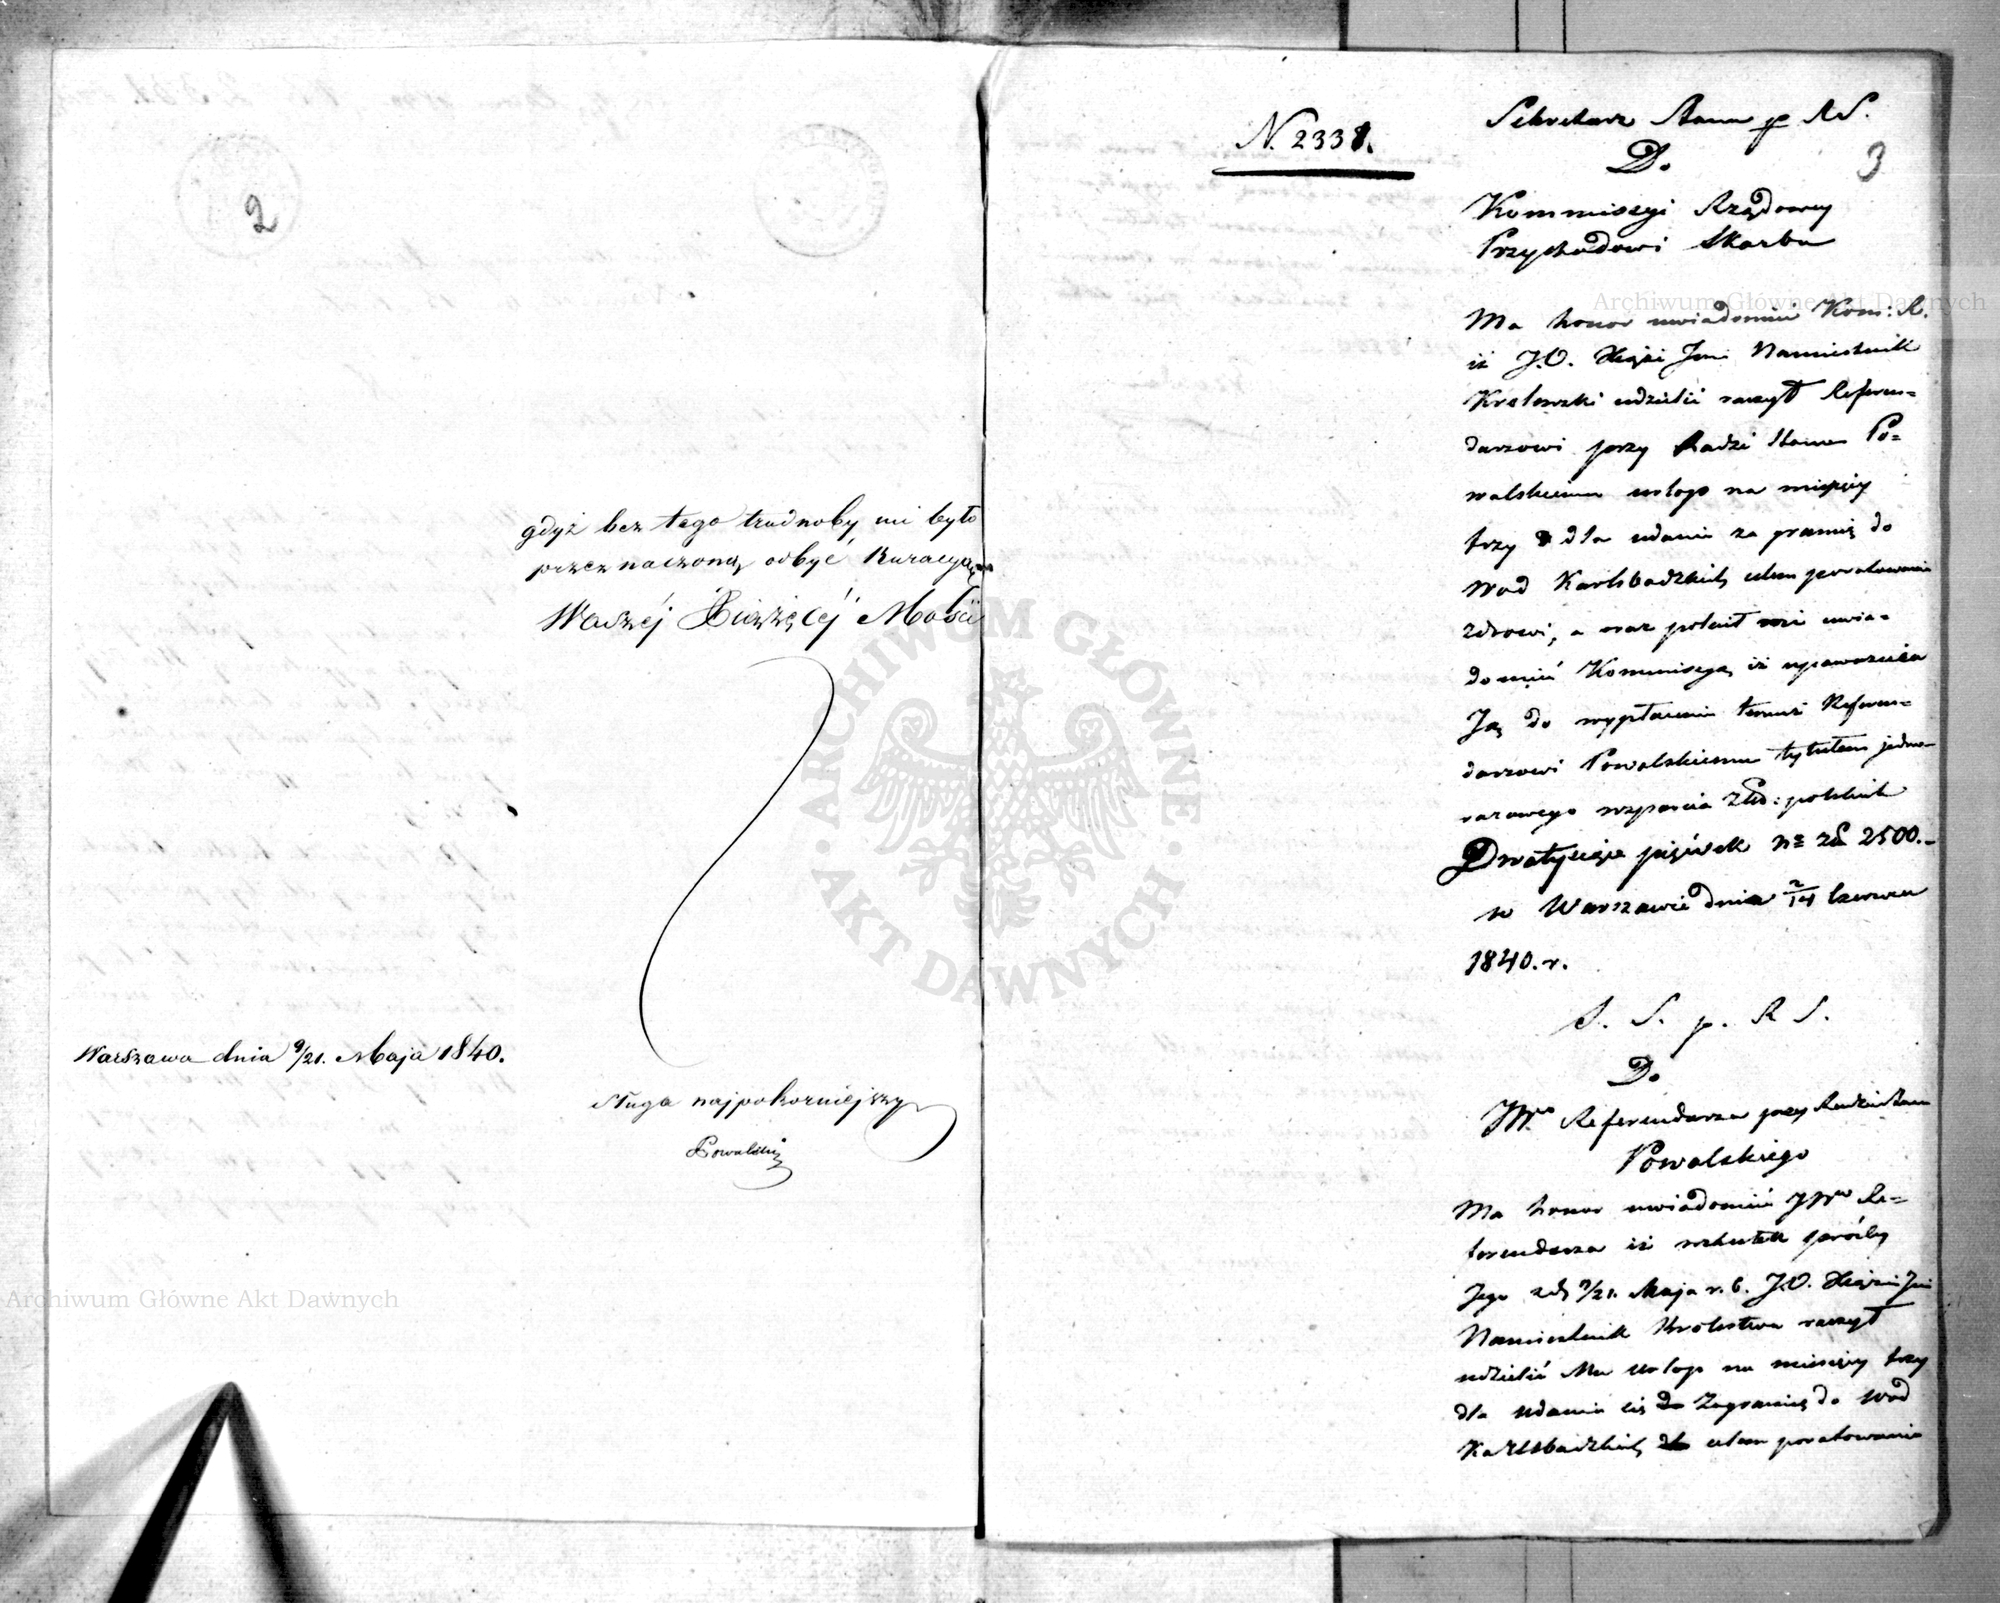 2
gdyż bez tego trudnoby mi było
przeznaczoną odbyć Kuracyą
Waszéj Xiążęcéj Mości
Warszawa dnia 9/21. Maja 1840.
sługa najpokorniejszy
Powalski
N. 2338.
3
Sekretarz Stanu p RS.
Do
Kommissyi Rządowey
Przychodowi Skarbu
Ma honor uwiadomić Kom: R.
iż J.O. Xiąże Jmć Namiestnik
Królewski udzielić raczył Referen=
darzowi przy Radzie Stanu Po=
walskiemu urlop na miesięcy
trzy dla udania za granicę do
wod Karlsbadzkich celem poratowania
zdrowia, a oraz polecił mi uwia=
domić Kommissyą iż upoważnia
Ją do wypłacenia temuż Referen=
darzowi Powalskiemu tytułem jedno=
razowego wsparcia Złt: polskich
Dwatysiące pięćset no zł 2500.-
w Warszawie dnia 2/14 Czerwca
1840. r.
S. S. p. R S.
Do
JWo Referendarza przy Radzie Stanu
Powalskiego
Ma honor uwiadomić JWo Re=
ferendarza iż wskutek prośby
Jego z d. 9/21. Maja r. b. J.O. Xiąże Jmć
Namiestnik Królestwa raczył
udzielić Mu urlop na miesięcy trzy
dla udania się Zagranicę do wod
Karlsbadzkich celem poratowania
Archiwum Główne Akt Dawnych
Archiwum Główne Akt Dawnych
ARCHIWUM GŁÓWNE
AKT DAWNYCH